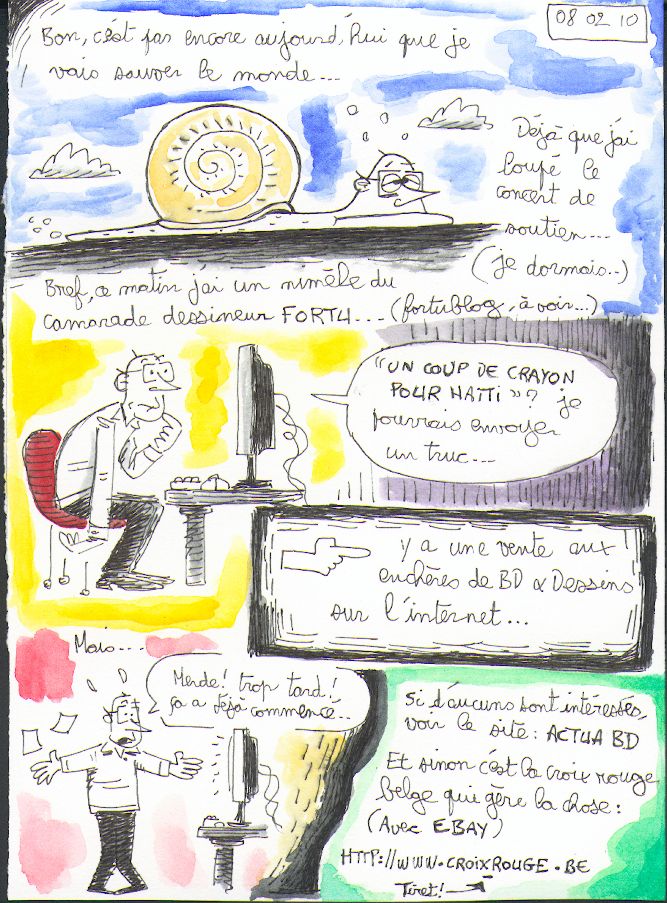 08 02 10
Bon, c'est pas encore aujourd'hui que je
vais sauver le monde...
Déjà que j'ai
loupé le
concert de
soutien...
(je dormais..)
Bref, ce matin j'ai un mimèle du
camarade dessineur FORTU... (fortublog, à voir...)
"UN COUP DE CRAYON
POUR HAITI"? je
pourrais envoyer
un truc...
y a une vente aux
enchères de BD & Dessins
sur l'internet...
Mais...
Merde! trop tard!
ça a déjà commencé..
Si d'aucuns sont intéressés,
voir le site: ACTUA BD
Et sinon c'est la croix rouge
belge qui gère la chose:
(Avec EBAY)
HTTP://WWW.CROIXROUGE.BE
Tiret!